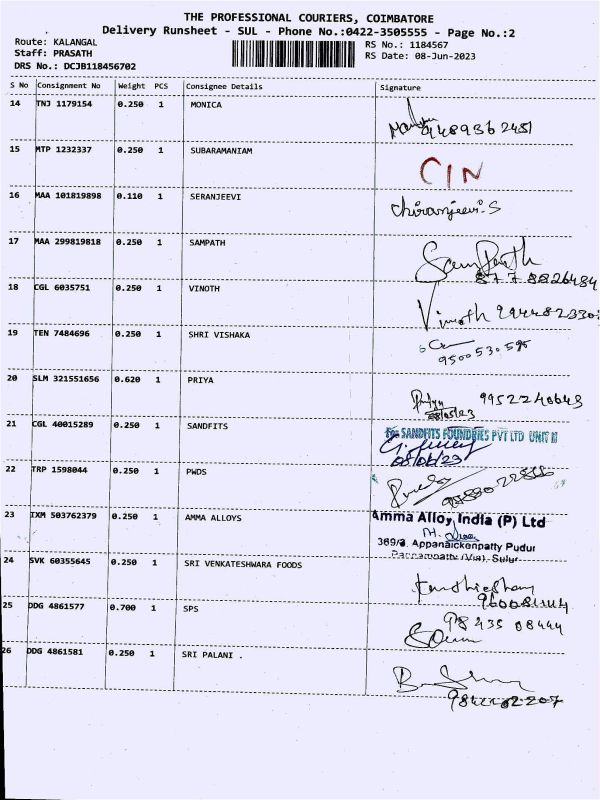 THE PROFESSIONAL COURIERS, COIMBATORE
Delivery Runsheet - SUL - Phone No.:0422-3505555 - Page No.:2
Route: KALANGAL RS No.: 1184567
Staff: PRASATH RS Date: 08-Jun-2023
DRS No.: DCJB118456702
S No Consignment No Weight PCS Consignee Details Signature
14 TNJ 1179154 0.250 1 MONICA
9489362451
15 MTP 1232337 0.250 1 SUBARAMANIAM
CIN
16 MAA 101819898 0.110 1 SERANJEEVI
chiranjeevi.S
17 MAA 299819818 0.250 1 SAMPATH
Sampath
8778826484
18 CGL 6035751 0.250 1 VINOTH
Vinoth
19 TEN 7484696 0.250 1 SHRI VISHAKA
20 SLM 321551656 0.620 1 PRIYA
Priya 9952240643
21 CGL 40015289 0.250 1 SANDFITS
For SANDFITS FOUNDRIES PVT LTD UNIT II
08/06/23
22 TRP 1598044 0.250 1 PWDS
23 IXM 503762379 0.250 1 AMMA ALLOYS
Amma Alloy India (P) Ltd
369/a. Appanaickenpatty Pudur
(Via) Sulur
24 SVK 60355645 0.250 1 SRI VENKATESHWARA FOODS
25 DDG 4861577 0.700 1 SPS
98435 08444
26 DDG 4861581 0.250 1 SRI PALANI .